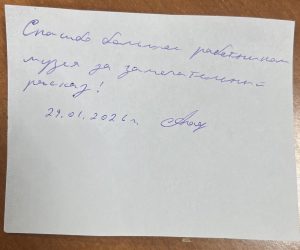 Спасибо большое работникам
музея за замечательный
рассказ!
29.01.2026 г.